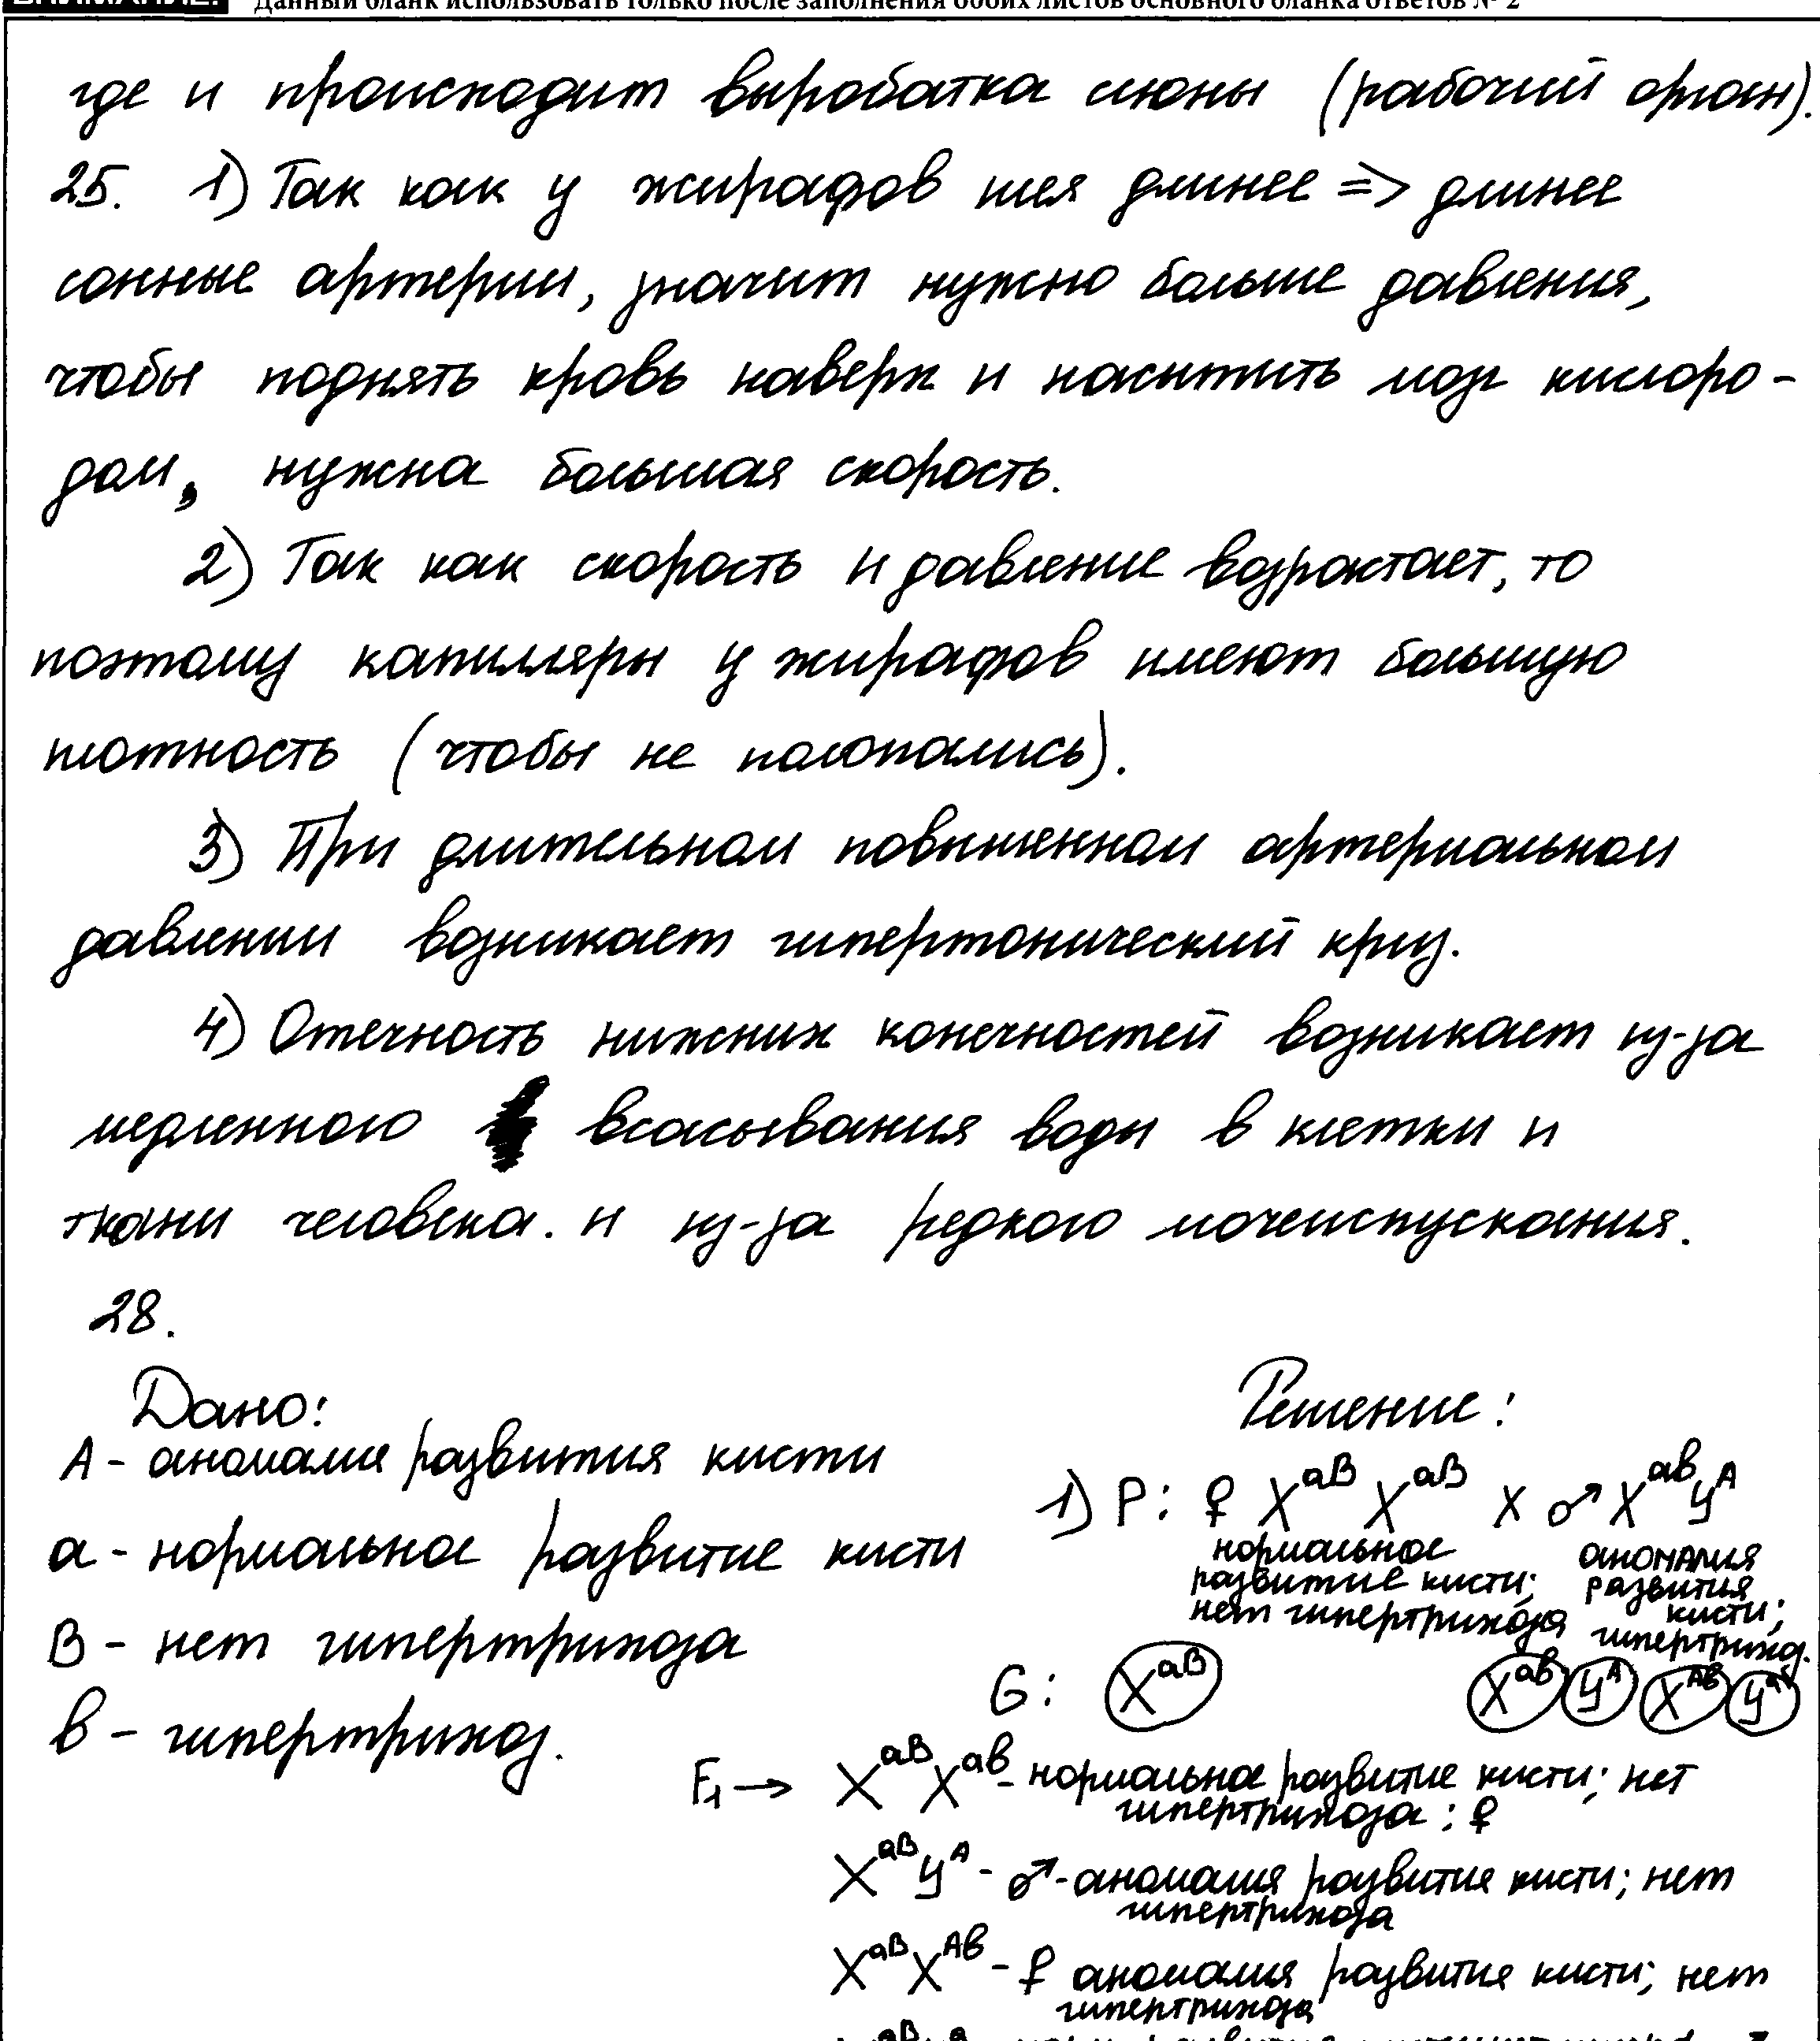 Данный бланк использовать только после заполнения обоих листов основного бланка ответов № 2
где и происходит выработка слюны (рабочий орган).
25. 1) Так как у жирафов шея длинее => длинее
сонные артерии, значит нужно больше давления,
чтобы поднять кровь наверх и насытить мозг кислоро-
дом, нужна большая скорость.
2) Так как скорость и давление возрастает, то
поэтому капилляры у жирафов имеют большую
плотность (чтобы не полопались).
3) При длительном повышенном артериальном
давлении возникает гипертонический криз.
4) Отечность нижних конечностей возникает из-за
медленного всасывания воды в клетки и
ткани человека. и из-за редкого мочеиспускания.
28.
Дано: Решение:
А - аномалия развития кисти
а - нормальное развитие кисти
В - нет гипертрихоза
в - гипертрихоз.
1) P: ♀ X^aB X^aB x ♂ X^aв У^A
нормальное развитие кисти; нет гипертрихоза
аномалия развития кисти; гипертрихоз.
G: X^aB X^aв У^A X^Aв У^a
F1 → X^aB X^aв - нормальное развитие кисти; нет
гипертрихоза: ♀
X^aB У^A - ♂ - аномалия развития кисти; нет
гипертрихоза
X^aB X^Aв - ♀ аномалия развития кисти; нет
гипертрихоза